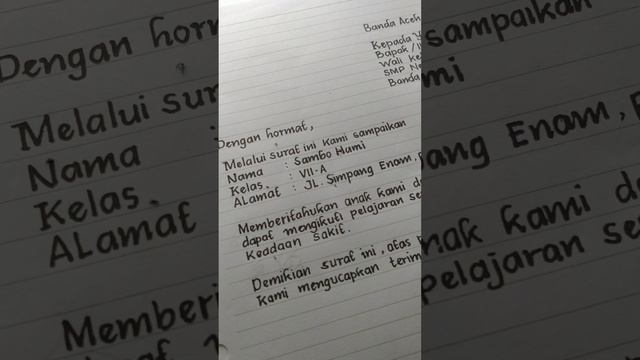 Banda Aceh
Kepada Y
Bapak/I
Wali Ke
SMP Ne
Banda
Dengan hormat,
Melalui surat ini kami sampaikan
Nama : Sambo Hami
Kelas : VII-A
ALamat : JL. Simpang Enam.
Memberitahukan anak kami d
dapat mengikuti pelajaran se
Keadaan sakit.
Demikian surat ini, atas
kami mengucapkan terim